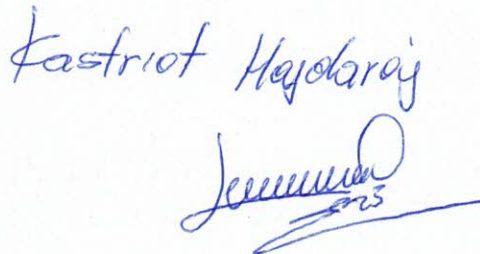 Kastriot Hajdaraj